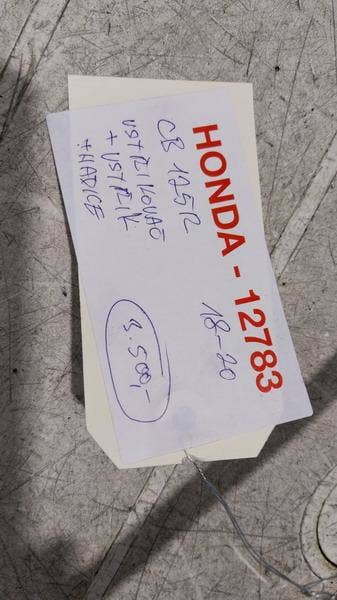 HONDA - 12783
CB 125R 18-20
VSTŘIKOVAČ
+ VSTŘIK
+ HADICE
3.500,-